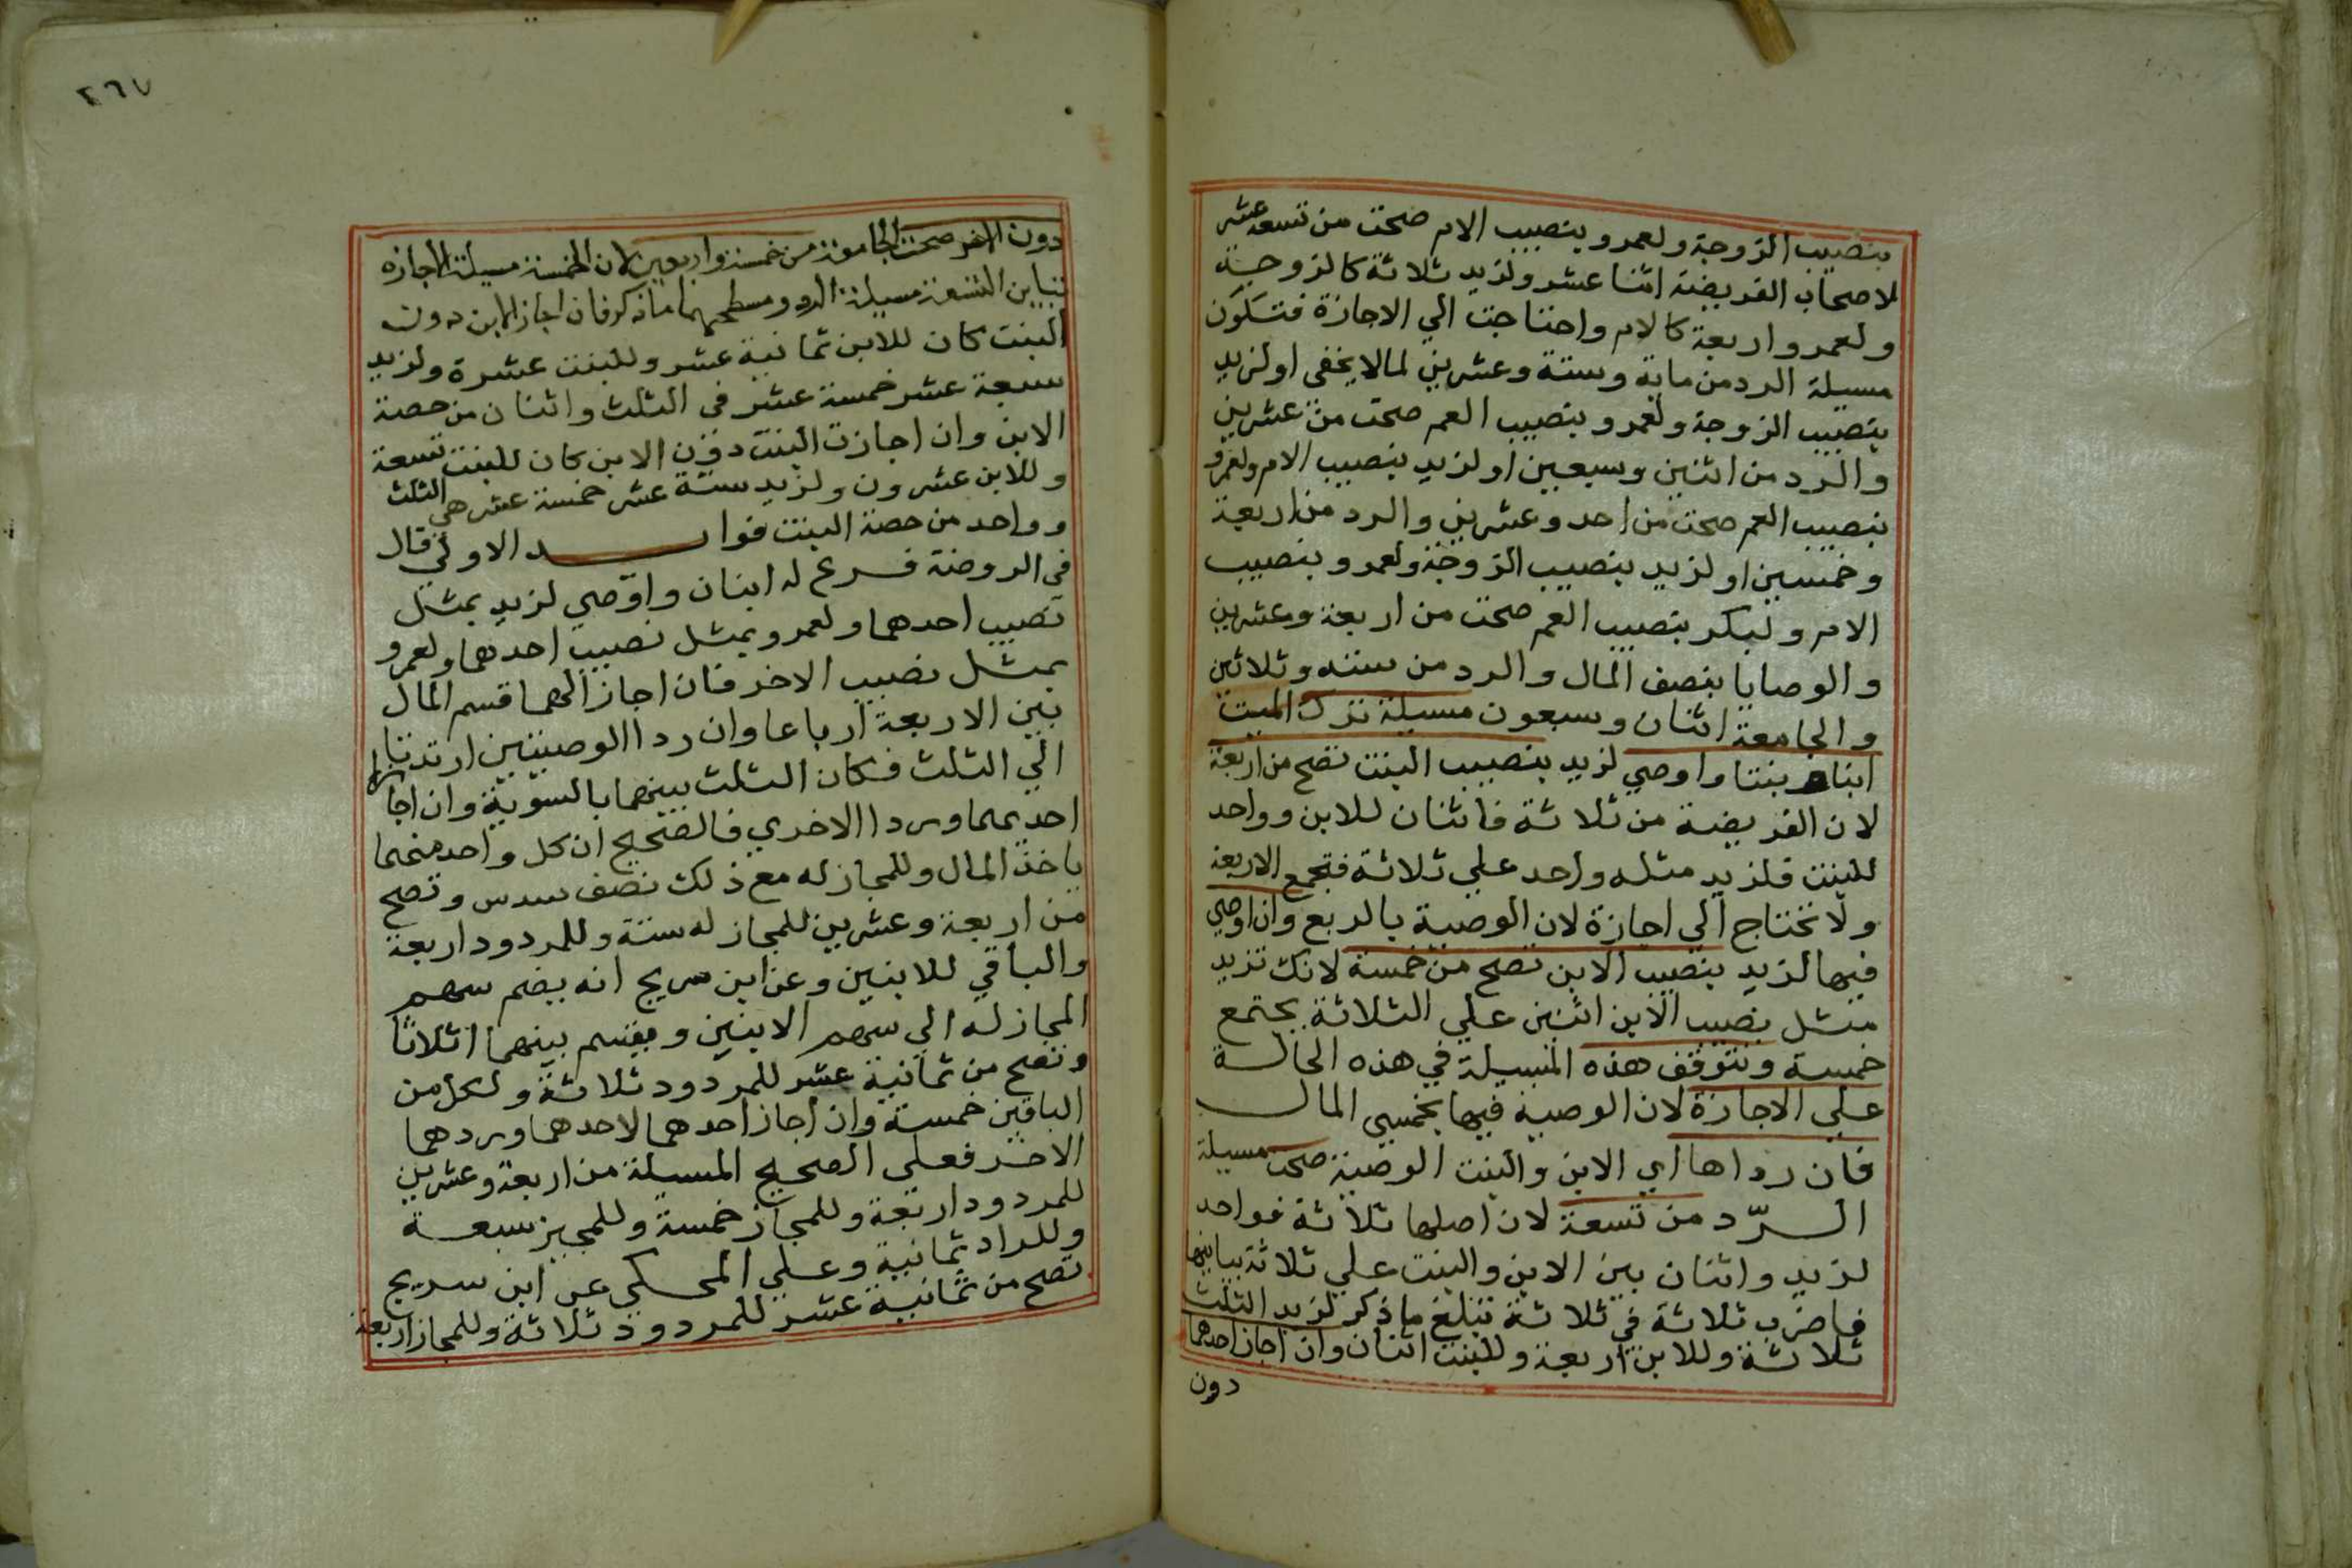 بنصيب الزوجة ولعمرو بنصيب الام صحت من تسعة عشر
لاصحاب الفريضة اثنا عشر ولزيد ثلاثة كالزوجة
ولعمرو اربعة كالام واحتاجت الي الاجازة فتكون
مسيلة الرد من ماية وستة وعشرين لما لا يخفى او لزيد
بنصيب الزوجة ولعمرو بنصيب العم صحت من عشرين
والرد من اثنين وسبعين او لزيد بنصيب الام ولعمرو
بنصيب العم صحت من احد وعشرين والرد من اربعة
وخمسين او لزيد بنصيب الزوجة ولعمرو بنصيب
الام ولبكر بنصيب العم صحت من اربعة وعشرين
والوصايا بنصف المال والرد من ستة وثلاثين
والجامعة اثنان وسبعون مسيلة ترك الميت
ابنا وبنتا واوصي لزيد بنصيب البنت تصح من اربعة
لان الفريضة من ثلاثة فاثنان للابن وواحد
للبنت فلزيد مثله واحد علي ثلاثة فتجمع الاربعة
ولا تحتاج الي اجازة لان الوصية بالربع وان اوصي
فيها لزيد بنصيب الابن تصح من خمسة لانك تزيد
مثل نصيب الابن اثنين علي الثلاثة يجتمع
خمسة وتتوقف هذه المسيلة في هذه الحالة
علي الاجازة لان الوصية فيها بخمسي المال
فان رداها اي الابن والبنت الوصية صحت مسيلة
الرّد من تسعة لان اصلها ثلاثة فواحد
لزيد واثنان بين الابن والبنت علي ثلاثة يباينها
فاضرب ثلاثة في ثلاثة تبلغ ما ذكر لزيد الثلث
ثلاثة وللابن اربعة وللبنت اثنان وان اجاز احدهما
دون
٢٦٧
دون الاخر صحت الجامعة من خمسة واربعين لان الخمسة مسيلة الاجازة
تباين التسعة مسيلة الرد ومسطحهما ما ذكر فان اجاز الابن دون
البنت كان للابن ثمانية عشر وللبنت عشرة ولزيد
سبعة عشر خمسة عشر في الثلث واثنان من حصة
الابن وان اجازت البنت دون الابن كان للبنت تسعة
وللابن عشرون ولزيد ستة عشر خمسة عشر هي الثلث
وواحد من حصة البنت فوايد الاولي قال
في الروضة فرع له ابنان واوصي لزيد بمثل
نصيب احدهما ولعمرو بمثل نصيب احدهما ولعمرو
بمثل نصيب الاخر فان اجازاهما قسم المال
بين الاربعة ارباعا وان ردا الوصيتين ارتدتا
الي الثلث فكان الثلث بينهما بالسوية وان اجازا
احديهما وردا الاخري فالصحيح ان كل واحد منهما
ياخذ المال وللمجاز له مع ذلك نصف سدس وتصح
من اربعة وعشرين للمجاز له ستة وللمردود اربعة
والباقي للابنين وعن ابن سريج انه يضم سهم
المجاز له الي سهم الابنين ويقسم بينهما اثلاثا
وتصح من ثمانية عشر للمردود ثلاثة ولكل من
الباقين خمسة وان اجاز احدهما لاحدهما وردهما
الاخر فعلي الصحيح المسيلة من اربعة وعشرين
للمردود اربعة وللمجاز خمسة وللمجيز سبعة
وللراد ثمانية وعلي المحكي عن ابن سريج
تصح من ثمانية عشر للمردود ثلاثة وللمجاز اربعة